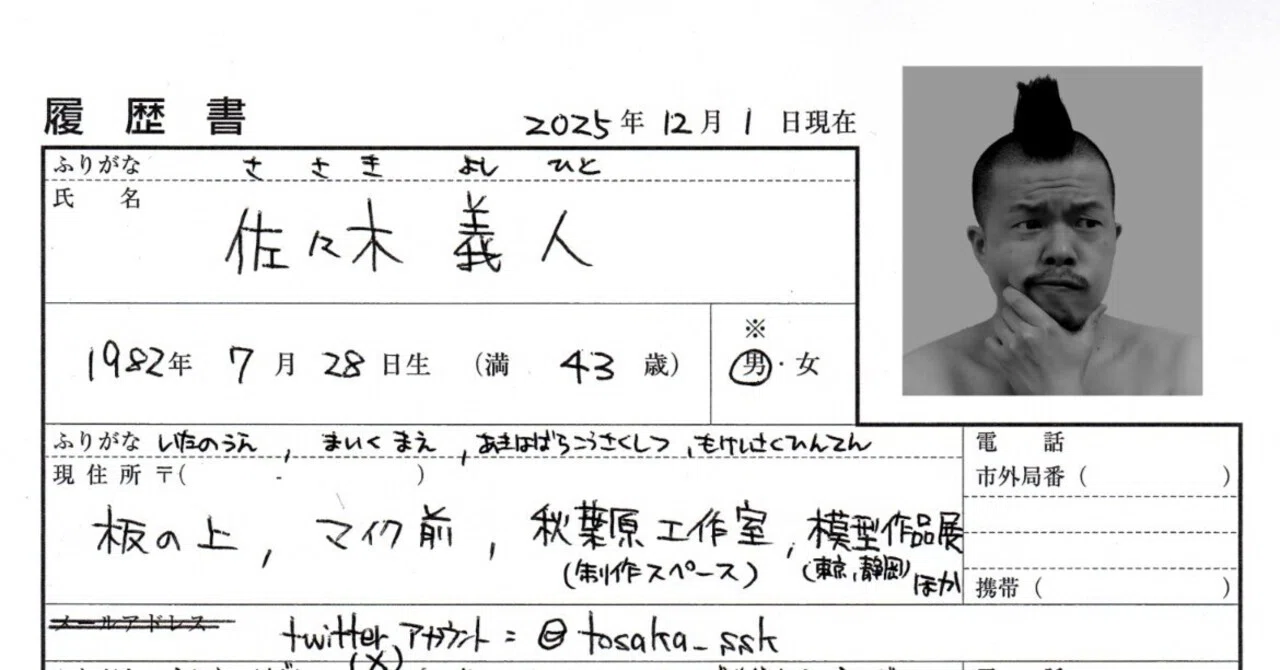 履歴書
2025年 12月 1日現在
ふりがな ささき よしひと
氏 名
佐々木 義人
※
1982年 7月 28日生 (満 43歳) 男・女
ふりがな いたのうえ, まいくまえ, あきはばらこうさくしつ, もけいさくひんてん
現住所 〒( - )
板の上, マイク前, 秋葉原工作室, 模型作品展
(制作スペース) (東京, 静岡) ほか
電 話
市外局番 ( )
携帯 ( )
メールアドレス twitterアカウント = @tosaka_ssk
(X)